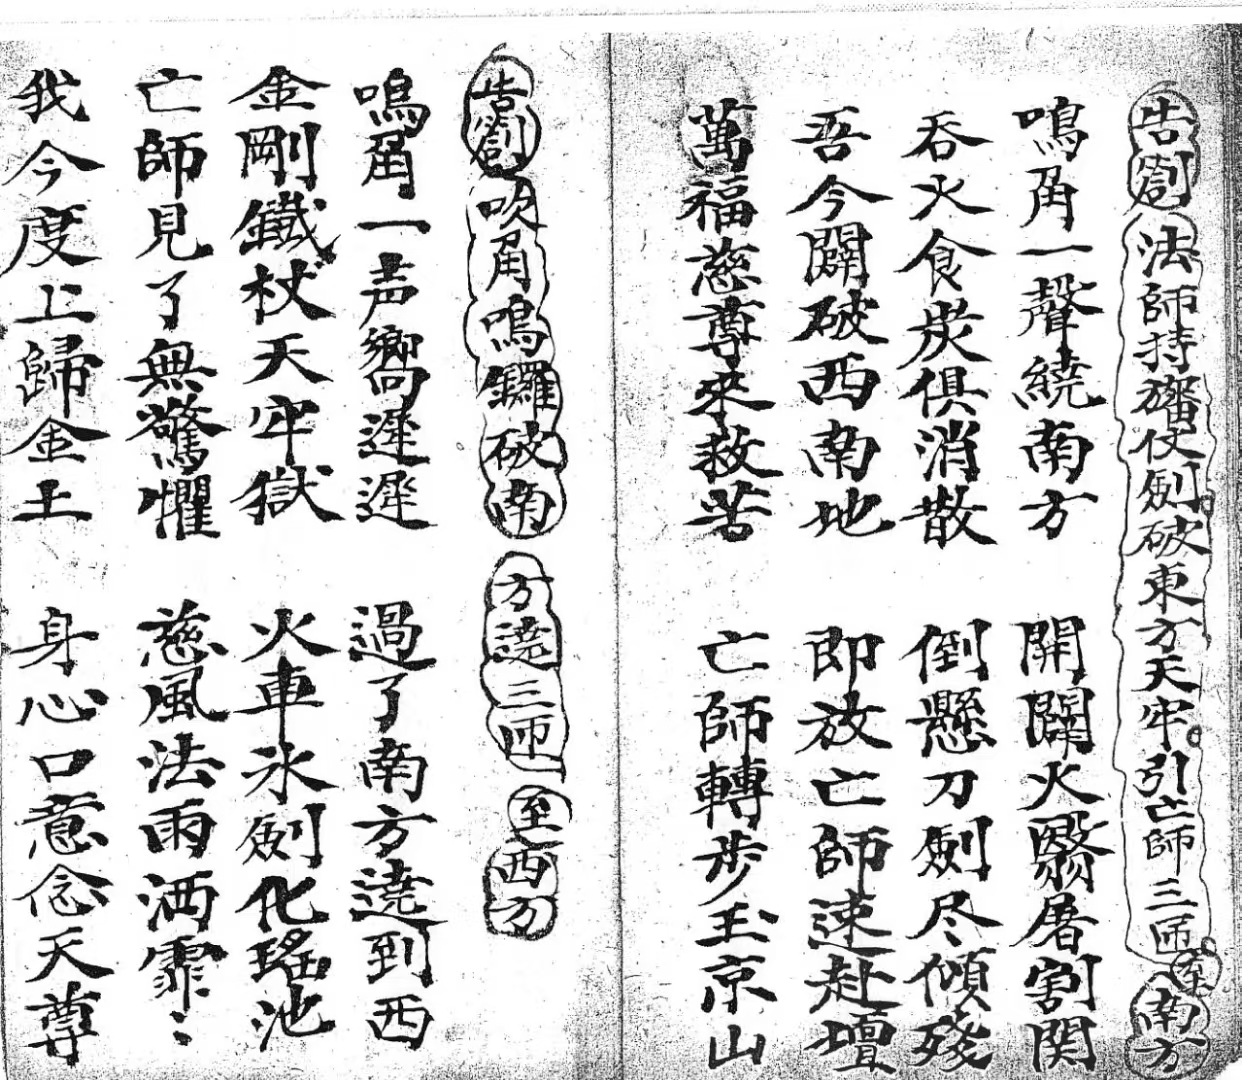 告劄法師持旛仗劍破東方天牢引亡師三匝至南方
鳴角一聲繞南方 開闢火翳屠割関
吞火食炭俱消散 倒懸刀劍尽傾殘
吾今闢破西南地 即放亡師速赴壇
萬福慈尊來救苦 亡師轉步玉京山
告劄吹角鳴鑼破南方遶三匝至西方
鳴角一声嚮遲遲 過了南方遶到西
金剛鐵杖天牢獄 火車氷劍化瑤池
亡師見了無驚懼 慈風法雨洒霏〻
我今度上歸金土 身心口意念天尊